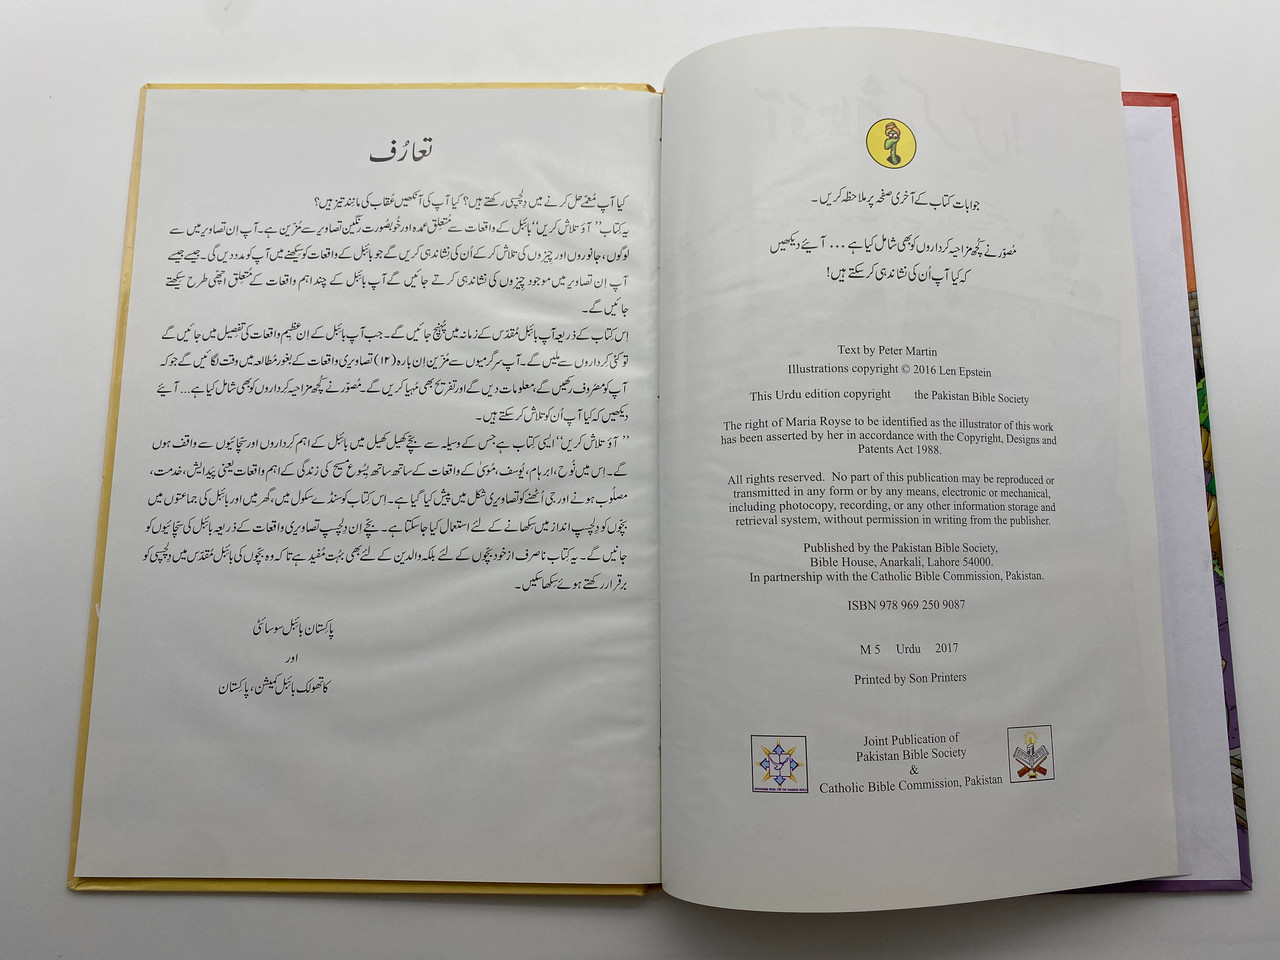 تعارُف
کیا آپ مُعمّے حل کرنے میں دِلچسپی رکھتے ہیں؟ کیا آپ کی آنکھیں عُقاب کی مانِند تیز ہیں؟
یہ کِتاب ’’آؤ تلاش کریں‘‘ بائبل کے واقعات سے مُتعلِق عمدہ اور خُوبصُورت رنگین تصاویر سے مُزیّن ہے۔ آپ اِن تصاویر میں سے
لوگوں، جانوروں اور چیزوں کی تلاش کر کے اُن کی نشاندہی کریں گے جو بائبل کے واقعات کو سیکھنے میں آپ کو مدد دیں گی۔ جیسے جیسے
آپ اِن تصاویر میں موجود چیزوں کی نشاندہی کرتے جائیں گے آپ بائبل کے چند اہم واقعات کے مُتعلِق اچھی طرح سیکھتے
جائیں گے۔
اِس کِتاب کے ذریعہ آپ بائبل مُقدّس کے زمانہ میں پہُنچ جائیں گے۔ جب آپ بائبل کے اِن عظیم واقعات کی تفصِیل میں جائیں گے
تو کئی کِرداروں سے مِلیں گے۔ آپ سرگرمیوں سے مُزیّن اِن بارہ (۱۲) تصاویری واقعات کے بغور مُطالعہ میں وقت لگائیں گے جو کہ
آپ کو مصرُوف رکھیں گے، معلومات دیں گے اور تفریح بھی مُہیّا کریں گے۔ مُصوّر نے کُچھ مزاحیہ کِرداروں کو بھی شامل کیا ہے... آیئے
دیکھیں کہ کیا آپ اُن کو تلاش کر سکتے ہیں۔
’’آؤ تلاش کریں‘‘ ایسی کِتاب ہے جس کے وسیلہ سے بچّے کھیل کھیل میں بائبل کے اہم کِرداروں اور سچّائیوں سے واقف ہوں
گے۔ اِس میں نُوح، ابرہام، یُوسف، مُوسیٰ کے واقعات کے ساتھ ساتھ یِسُوع مسیح کی زِندگی کے اہم واقعات یعنی پَیدایش، خدمت،
مصلُوب ہونے اور جی اُٹھنے کو تصاویری شکل میں پیش کیا گیا ہے۔ اِس کِتاب کو سنڈے سکول میں، گھر میں اور بائبل کی جماعتوں میں
بچّوں کو دِلچسپ انداز میں سِکھانے کے لئے استعمال کیا جا سکتا ہے۔ بچّے اِن دِلچسپ تصاویری واقعات کے ذریعہ بائبل کی سچّائیوں کو
جانیں گے۔ یہ کِتاب ناصرف از خود بچّوں کے لئے بلکہ والدین کے لئے بھی بہُت مُفید ہے تاکہ وہ بچّوں کی بائبل مُقدّس میں دِلچسپی کو
برقرار رکھتے ہوئے سِکھا سکیں۔
پاکِستان بائبل سوسائٹی
اور
کاتھولک بائبل کمیشن، پاکِستان
جوابات کتاب کے آخری صفحہ پر ملاحظہ کریں۔
مُصوّر نے کُچھ مزاحیہ کِرداروں کو بھی شامل کیا ہے ... آیئے دیکھیں
کہ کیا آپ اُن کی نشاندہی کر سکتے ہیں!
Text by Peter Martin
Illustrations copyright © 2016 Len Epstein
This Urdu edition copyright the Pakistan Bible Society
The right of Maria Royse to be identified as the illustrator of this work
has been asserted by her in accordance with the Copyright, Designs and
Patents Act 1988.
All rights reserved. No part of this publication may be reproduced or
transmitted in any form or by any means, electronic or mechanical,
including photocopy, recording, or any other information storage and
retrieval system, without permission in writing from the publisher.
Published by the Pakistan Bible Society,
Bible House, Anarkali, Lahore 54000.
In partnership with the Catholic Bible Commission, Pakistan.
ISBN 978 969 250 9087
M 5 Urdu 2017
Printed by Son Printers
Joint Publication of
Pakistan Bible Society
&
Catholic Bible Commission, Pakistan